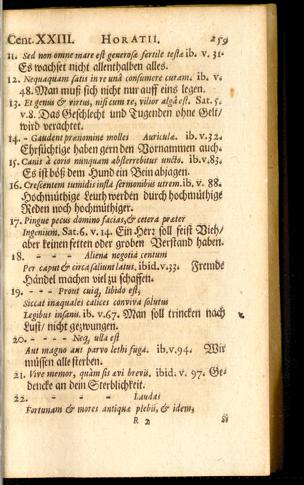 Cent. XXIII. HORATII. 259
11. Sed non omne mare est generosæ fertile testæ ib. v. 31.
Es wachset nicht allenthalben alles.
12. Nequaquam satis in re unâ consumere curam. ib. v.
48. Man muß sich nicht nur auff eins legen.
13. Et genus & virtus, nisi cum re, vilior algâ est. Sat. 5.
v. 8. Das Geschlecht und Tugenden ohne Gelt/
wird verachtet.
14. - Gaudent prænomine molles Auriculæ. ib. v. 32.
Ehrsüchtige haben gern den Vornammen auch.
15. Canis à corio nunquam absterrebitur uncto. ib. v. 83.
Es ist böß dem Hund ein Bein abjagen.
16. Crescentem tumidis infla sermonibus utrem. ib. v. 88.
Hochmüthige Leuth werden durch hochmüthige
Reden noch hochmüthiger.
17. Pingue pecus domino facias, & cetera præter
Ingenium, Sat. 6. v. 14. Ein Herz soll feist Vieh/
aber keinen fetten oder groben Verstand haben.
18. - - - Aliena negotia centum
Per caput & circa saliunt latus, ibid. v. 33. Fremde
Händel machen viel zu schaffen.
19. - - - Prout cuiq; libido est;
Siccat inæquales calices conviva solutus
Legibus insanis. ib. v. 67. Man soll trincken nach
Lust/ nicht gezwungen.
20. - - - - Neq; ulla est
Aut magno aut parvo lethi fuga. ib. v. 94. Wir
müssen alle sterben.
21. Vive memor, quàm sis ævi brevis, ibid. v. 97. Ge-
dencke an dein Sterblichkeit.
22. - - - - Laudas
Fortunam & mores antiquæ plebis, & idem,
R 2 Si